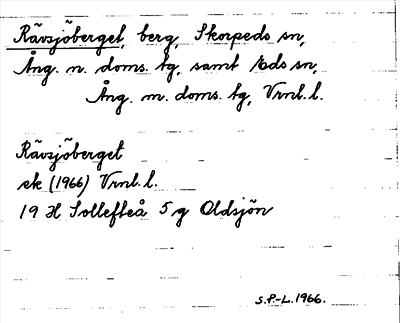 Rävsjöberget, berg, Skorpeds sn,
Ång. n. doms. tg, samt Eds sn,
Ång. m. doms. tg, Vrnl. l.
Rävsjöberget
ek (1966) Vrnl. l.
19 H Sollefteå 5 g Oldsjön
S.P.-L. 1966.